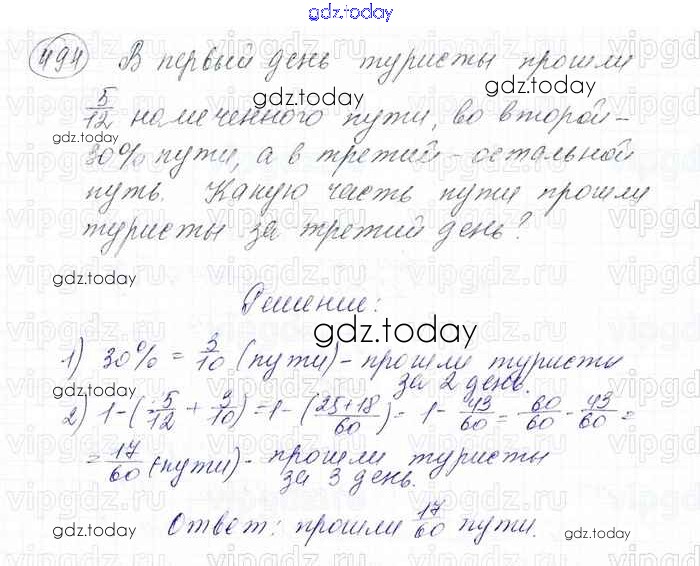 gdz.today
494 В первый день туристы прошли
5/12 намеченного пути, во второй -
30% пути, а в третий - остальной
путь. Какую часть пути прошли
туристы за третий день?
Решение:
1) 30% = 3/10 (пути) - прошли туристы
за 2 день.
2) 1-(5/12 + 3/10) = 1 - (25+18/60) = 1 - 43/60 = 60/60 - 43/60 =
= 17/60 (пути) - прошли туристы
за 3 день.
Ответ: прошли 17/60 пути.
gdz.today